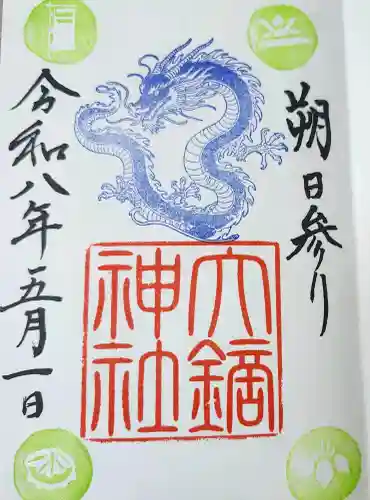 朔日参り
大鏑
神社
令和八年五月一日